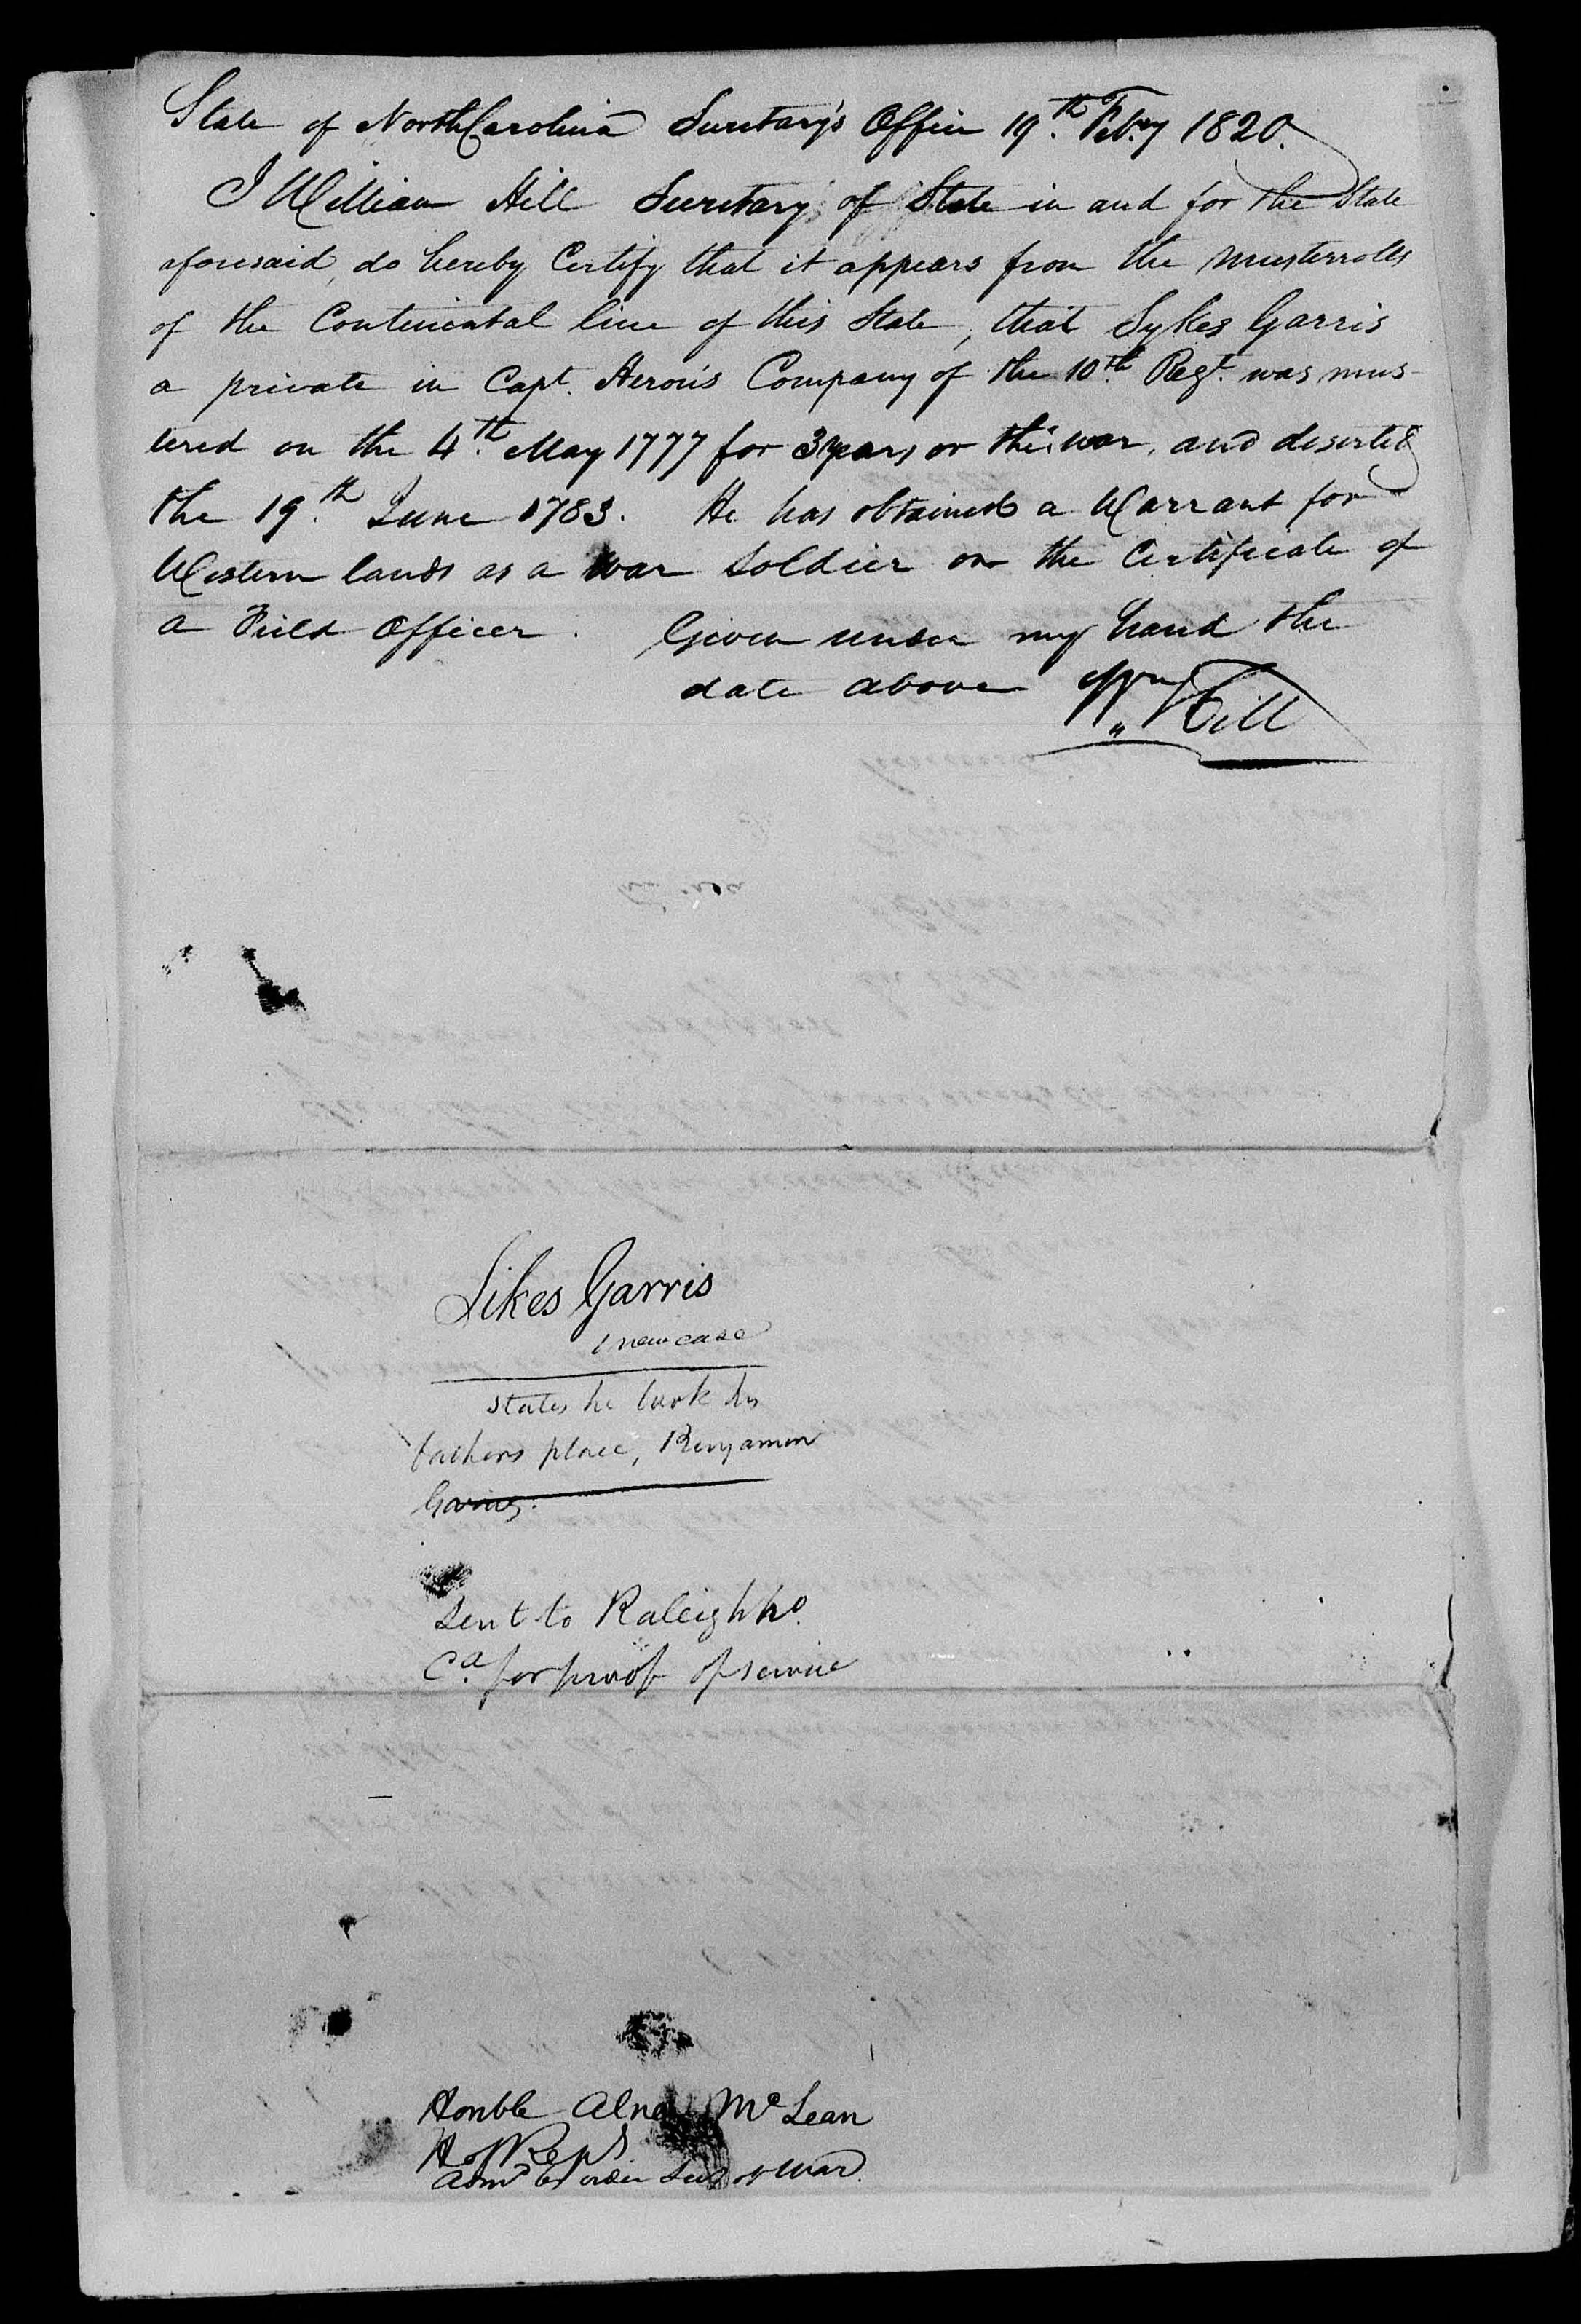 State of North Carolina Secretary's Office 19.th Feb.ry 1820.
I William Hill Secretary of State in and for the State
aforesaid, do hereby Certify that it appears from the musterrolls
of the Continental line of this State, that Sykes Garris
a private in Capt. Heron's Company of the 10.th Regt. was mus-
tered on the 4.th May 1777 for 3 years or the war, and deserted
the 19.th June 1783. He has obtained a Warrant for
Western lands as a war soldier on the Certificate of
a Field Officer. Given under my hand the
date above Wm Hill
Likes Garris
new case
states he took his
fathers place, Benjamin
Garris.
Sent to Raleigh No.
Ca. for proof of service
Honble McLean
H of Reps
Adm.d by order Sec of War.